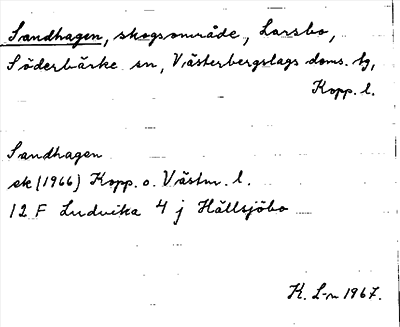 Sandhagen, skogsområde, Larsbo,
Söderbärke sn, Västerbergslags doms. tg,
Kopp. l.
Sandhagen
ek (1966) Kopp. o. Västm. l.
12 F Ludvika 4 j Hällsjöbo
K. L-n 1967.